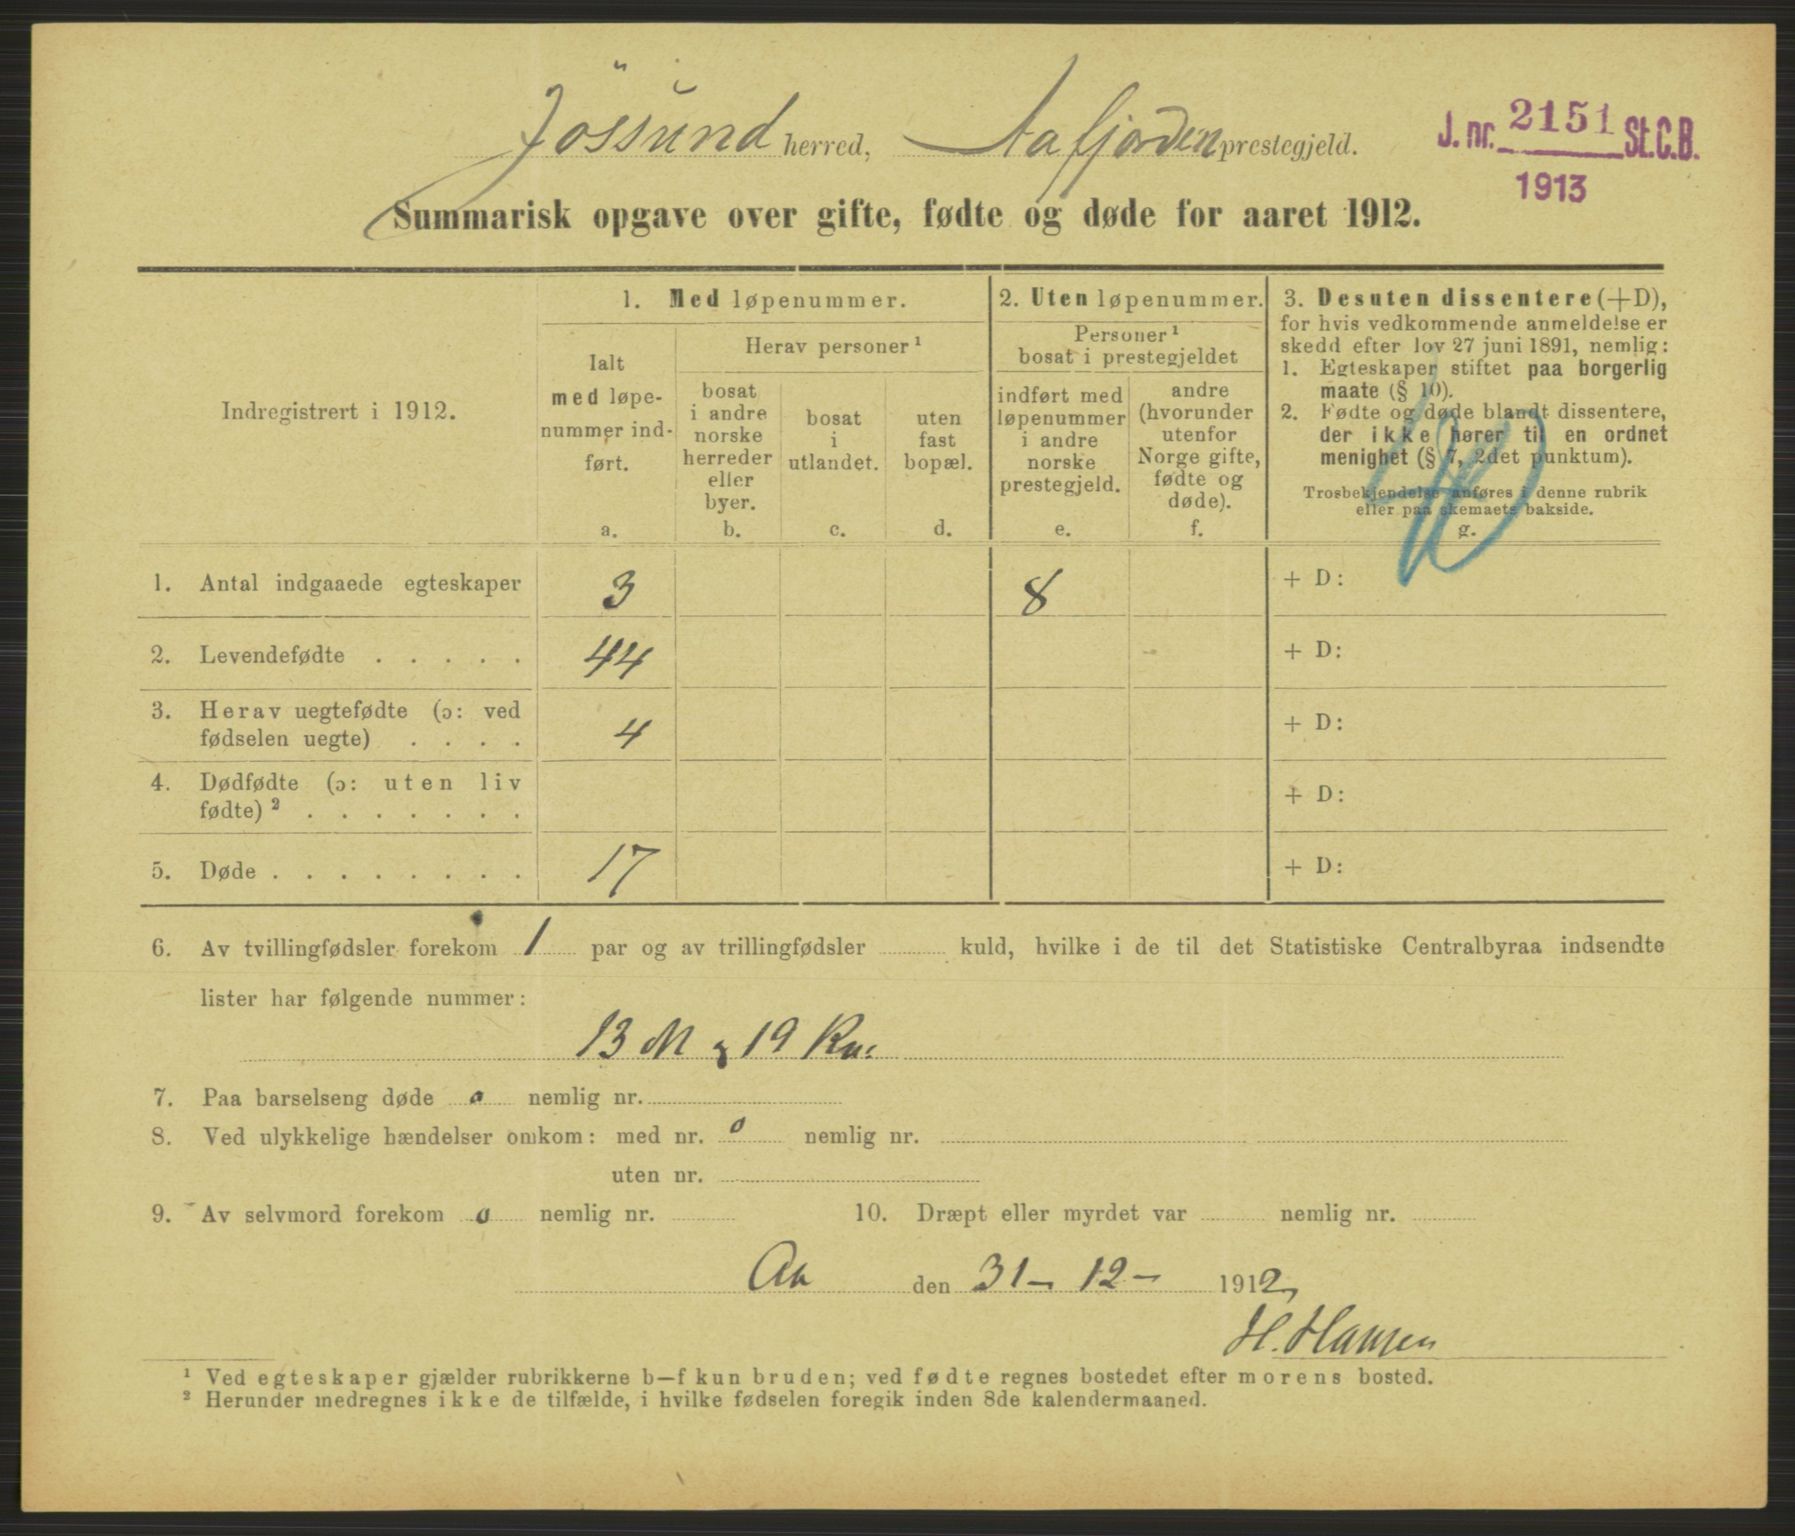 Jössund herred, Aafjorden prestegjeld.
J. nr. 2151 St.C.B.
1913
Summarisk opgave over gifte, fødte og døde for aaret 1912.
Indregistrert i 1912.
1. Med løpenummer.
Ialt
med løpe-
nummer ind-
ført.
a.
Herav personer¹
bosat
i andre
norske
herreder
eller
byer.
b.
bosat
i
utlandet.
c.
uten
fast
bopæl.
d.
2. Uten løpenummer.
Personer¹
bosat i prestegjeldet
indført med
løpenummer
i andre
norske
prestegjeld.
e.
andre
(hvorunder
utenfor
Norge gifte,
fødte og
døde).
f.
3. Desuten dissentere (+D),
for hvis vedkommende anmeldelse er
skedd efter lov 27 juni 1891, nemlig:
1. Egteskaper stiftet paa borgerlig
maate (§ 10).
2. Fødte og døde blandt dissentere,
der ikke hører til en ordnet
menighet (§ 7, 2det punktum).
Trosbekjendelse anføres i denne rubrik
eller paa skemaets bakside.
g.
1. Antal indgaaede egteskaper 3 8 + D:
2. Levendefødte . . . . . 44 + D:
3. Herav uegtefødte (ɔ: ved
fødselen uegte) . . . . 4 + D:
4. Dødfødte (ɔ: uten liv
fødte)² . . . . . . . + D:
5. Døde . . . . . . . . 17 + D:
6. Av tvillingfødsler forekom 1 par og av trillingfødsler kuld, hvilke i de til det Statistiske Centralbyraa indsendte
lister har følgende nummer:
13 M og 19 Kv.
7. Paa barselseng døde 0 nemlig nr.
8. Ved ulykkelige hændelser omkom: med nr. 0 nemlig nr.
uten nr.
9. Av selvmord forekom 0 nemlig nr. 10. Dræpt eller myrdet var nemlig nr.
Aa den 31 - 12 - 1912,
H. Hansen
¹ Ved egteskaper gjælder rubrikkerne b—f kun bruden; ved fødte regnes bostedet efter morens bosted.
² Herunder medregnes ikke de tilfælde, i hvilke fødselen foregik inden 8de kalendermaaned.